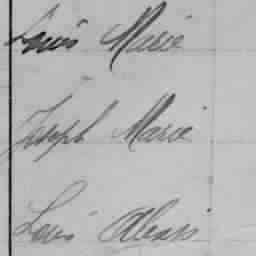 Louis Marie
Joseph Marie
Louis Alexis